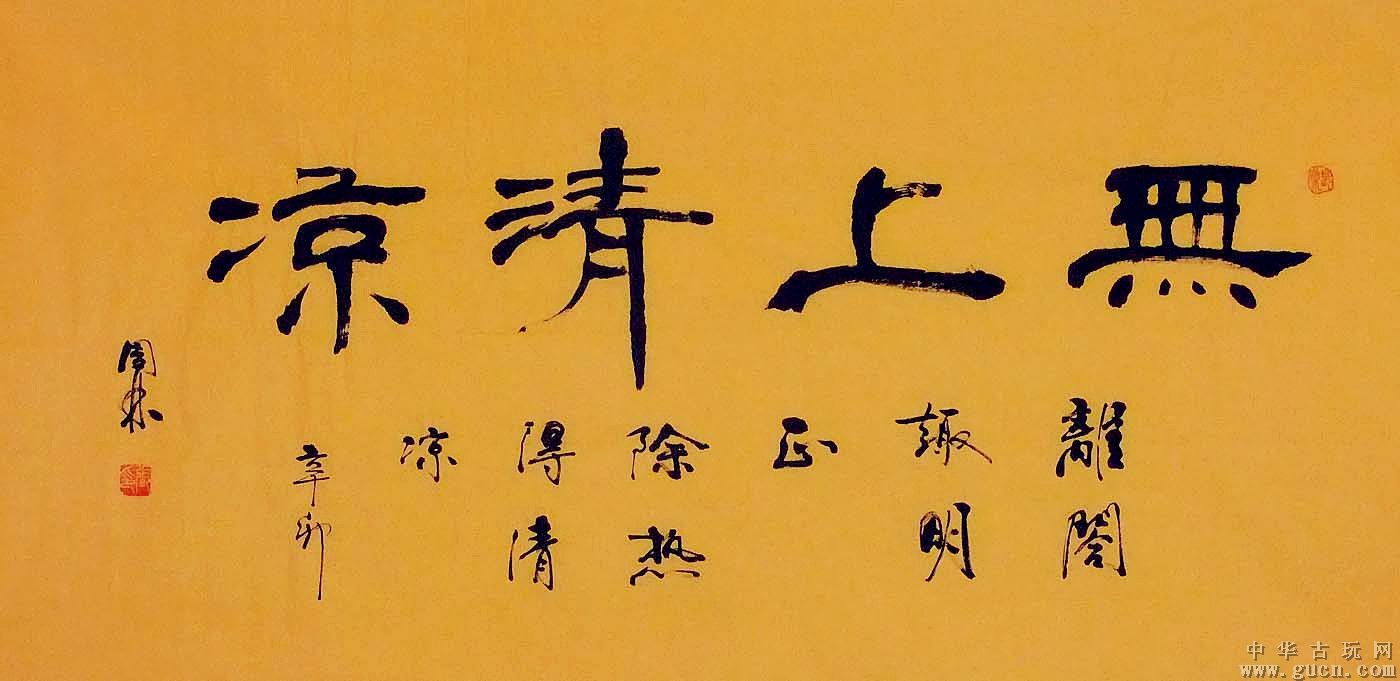 無上清凉
離闇
趣明
正
除热
得清
凉
辛卯
周林
中华古玩网
www.gucn.com